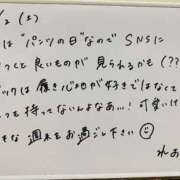 /2 (土)
は"パンツの日"なのでSNSに
っくて良いものが見られるかも(??
ックは履き心地が好きではなくて
っても持ってないんよなあ…!可愛いけ
そな週末をお過ごし下さい☺
れあ